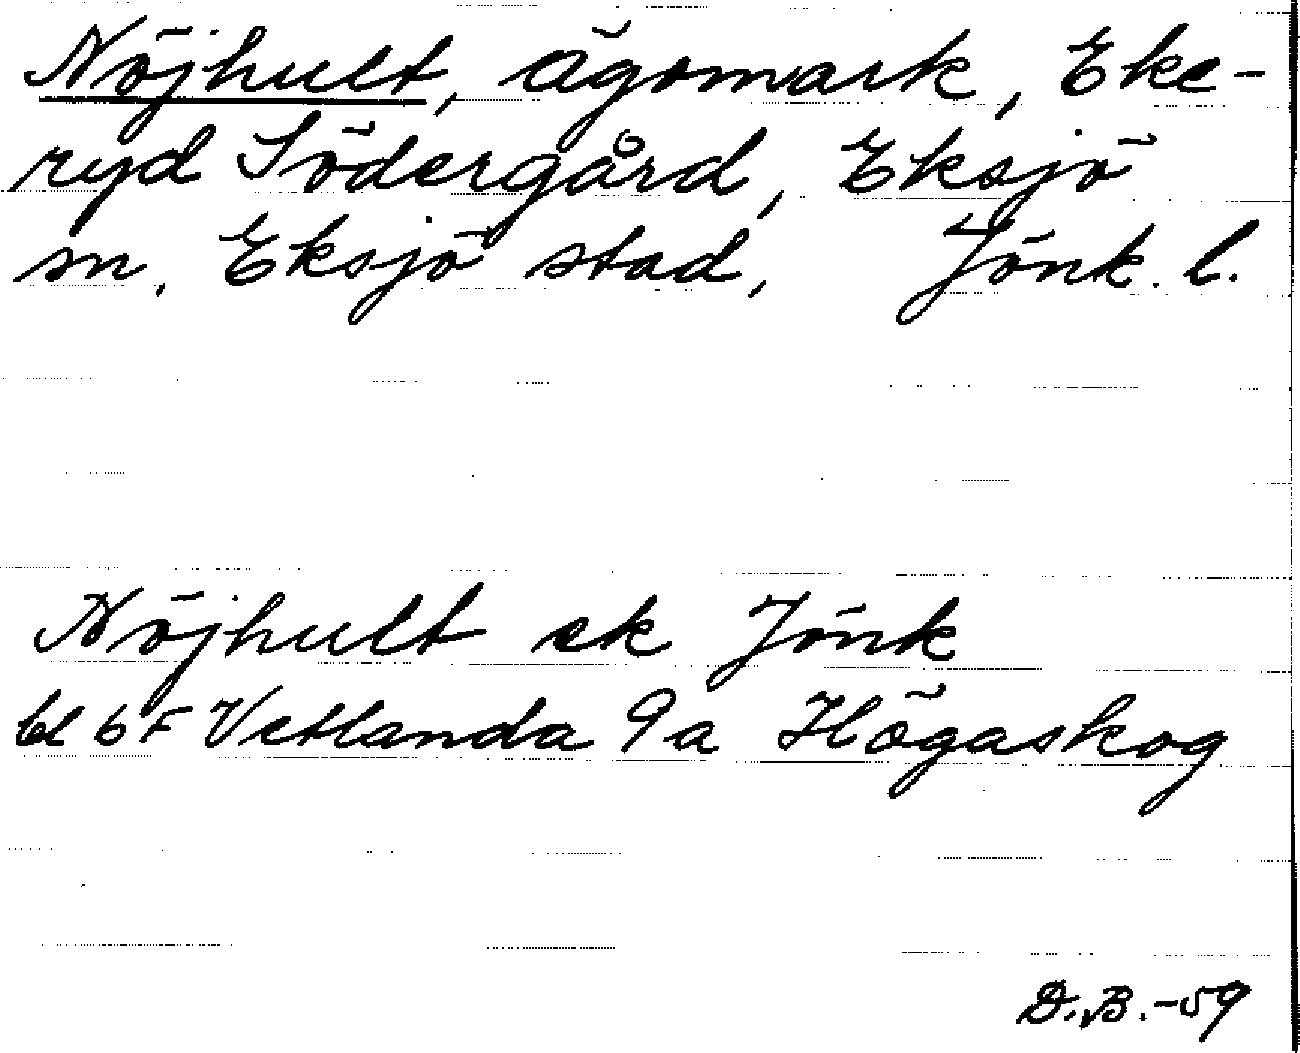 Nöjhult, ägomark, Eke-
ryd Södergård, Eksjö
sn, Eksjö stad, Jönk. l.
Nöjhult ek Jönk
bl 6 F Vetlanda 9a Högaskog
D.B. -59